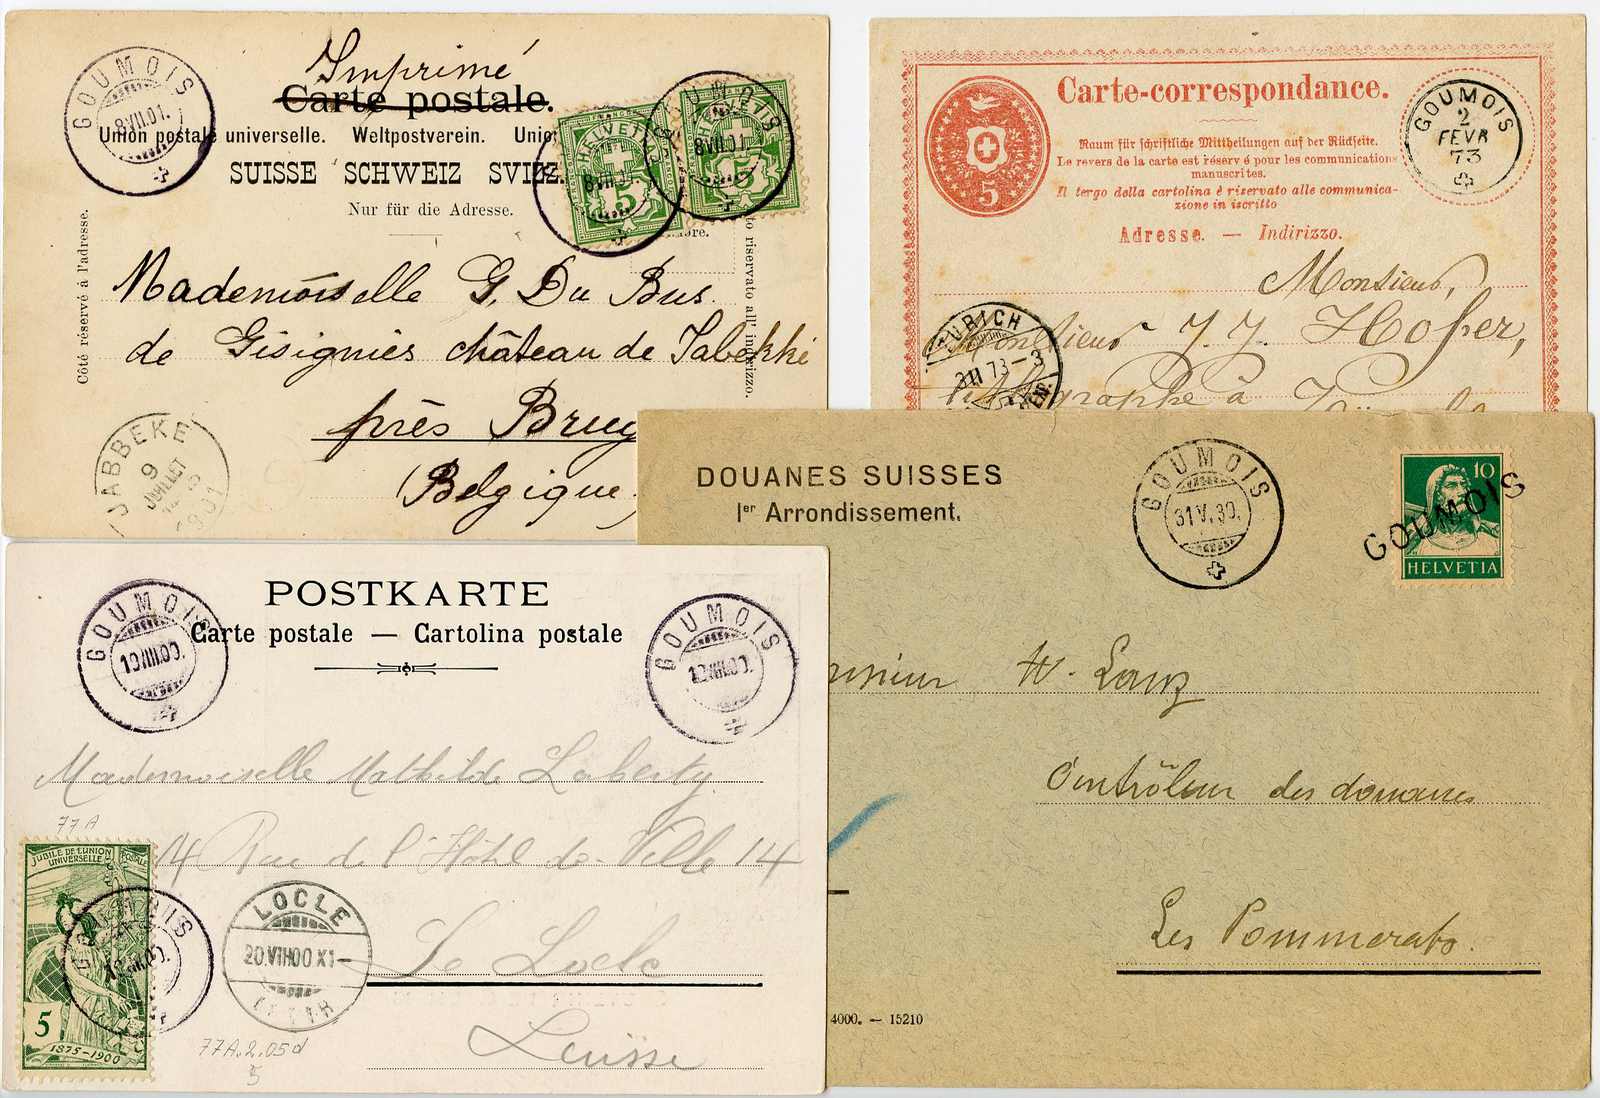 GOUMOIS
8 VII.01.
Imprimé
Carte postale.
Union postale universelle. Weltpostverein. Unio
SUISSE SCHWEIZ SVIZ
Nur für die Adresse.
Côté réservé à l'adresse.
to riservato all' indirizzo.
HELVETIA
5
8 VII.01.
HELVETIA
5
GOUMOIS
8 VII.01.
Mademoiselle G. Du Bus
de Gisignies château de Jabekké
près Brug
Belgique
JABBEKE
9
JUILLET
1901
5
Carte-correspondance.
Raum für schriftliche Mittheilungen auf der Rückseite.
Le revers de la carte est réservé pour les communications
manuscrites.
Il tergo della cartolina è riservato alle communica-
zione in iscritto
Adresse. — Indirizzo.
GOUMOIS
2
FEVR
73
Monsieur,
Monsieur J. J. Hofer,
lithographe à
ZURICH
3 II 73 – 3
DOUANES SUISSES
Ier Arrondissement.
GOUMOIS
31 V. 30.
10
HELVETIA
GOUMOIS
W. Lanz
Contrôleur des douanes
Les Pommerats.
4000. — 15210
POSTKARTE
Carte postale — Cartolina postale
GOUMOIS
GOUMOIS
Mademoiselle Mathilde Laberty
14 Rue de l'Hôtel de Ville 14
Le Locle
Suisse
77A
JUBILÉ DE L'UNION POSTALE
UNIVERSELLE
5
1875-1900
GOUMOIS
LOCLE
20.VIII00 XI–
77A.2.05d
5